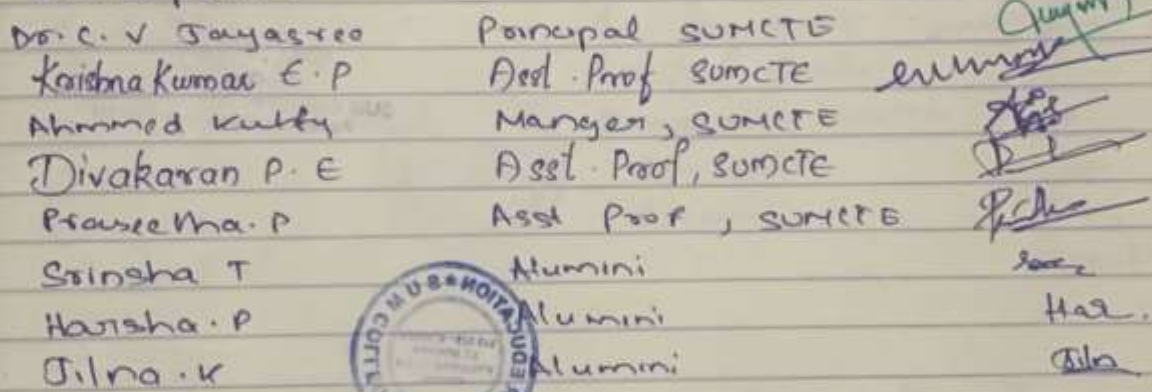 Dr. C. V Jayasree Principal SUMCTE
Krishna Kumar E. P Asst. Prof SUMCTE
Ahmmed Kutty Manger, SUMCTE
Divakaran P. E Asst. Prof, SUMCTE
Praseetha. P Asst Prof, SUMCTE
Srinsha T Alumini
Harsha. P Alumini Har.
Jilna. K Alumini Jiln